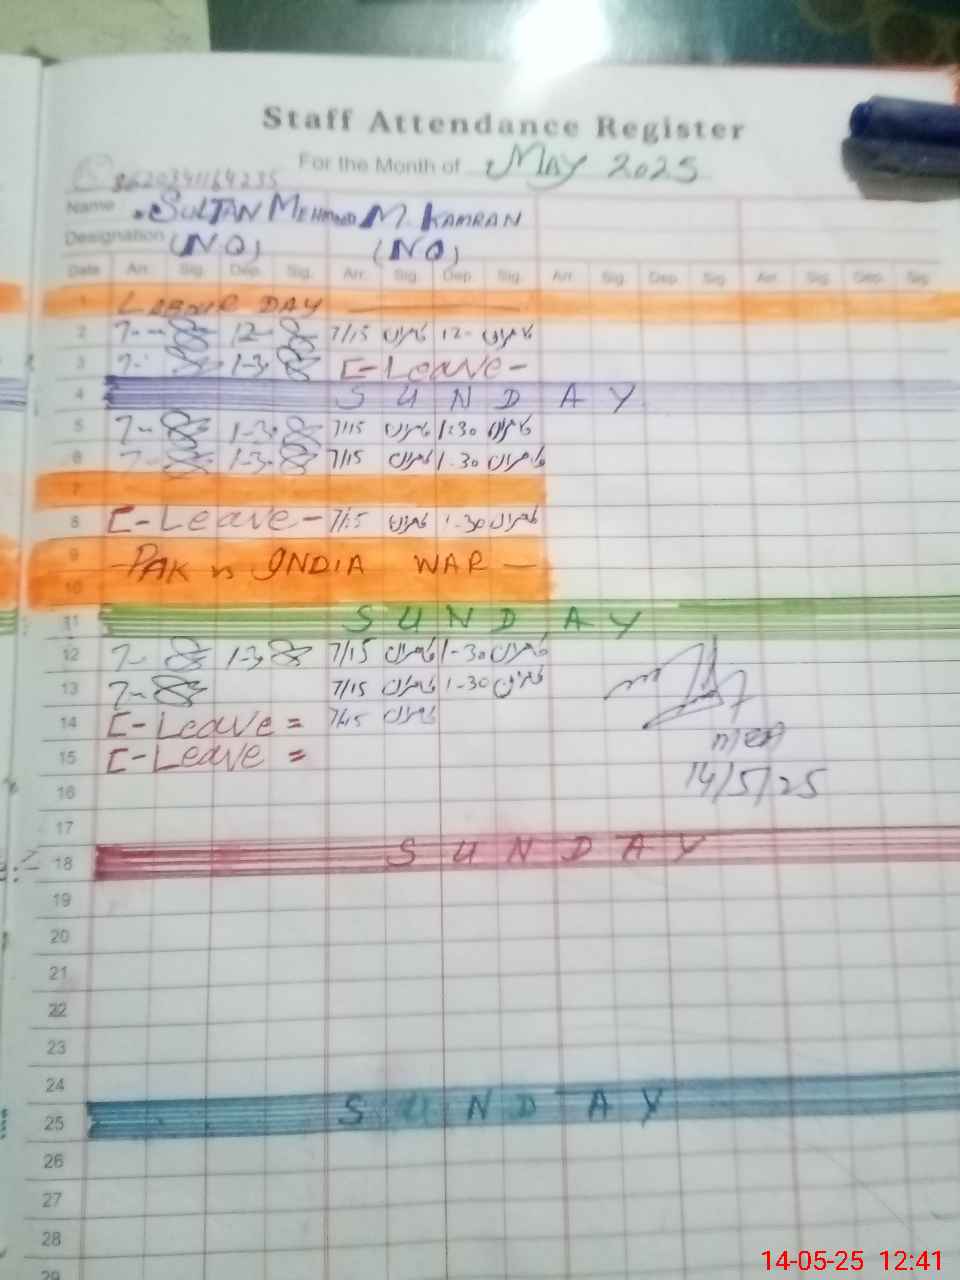 Staff Attendance Register
For the Month of MAY 2025
Name SULTAN MEHMOOD M. KAMRAN
Designation (NQ) (NQ)
Date Arr. Sig. Dep. Sig. Arr. Sig. Dep. Sig. Arr. Sig. Dep. Sig. Arr. Sig. Dep. Sig.
1 LABOUR DAY
2 7-- 12- 7/15 کامران 12- کامران
3 7- 1-3 C-Leave-
4 SUNDAY
5 7-- 1-3 7/15 کامران 1:30 کامران
6 7-- 1-3 7/15 کامران 1-30 کامران
7
8 C-Leave- 7/15 کامران 1-30 کامران
9 -PAK vs INDIA WAR-
10
11 SUNDAY
12 7- 1-3 7/15 کامران 1-30 کامران
13 7- 7/15 کامران 1-30 کامران
14 C-Leave = 7/15 کامران
MEA
15 C-Leave =
14/5/25
16
17
18 SUNDAY
19
20
21
22
23
24
25 SUNDAY
26
27
28
29
14-05-25 12:41